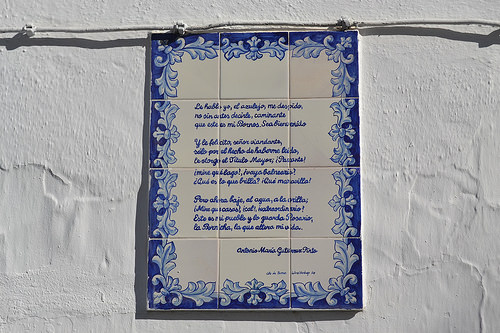 Le hablo yo, el azulejo, me despido,
no sin antes decirle, caminante
que este es mi Bornos. Sea bienvenido
Y le felicito, señor viandante,
sólo por el hecho de haberme leído,
le otorgo el Título Mayor; ¡Paseante!
¡mire qué lago!, ¡vaya balneario!
¿Qué es lo que brilla? ¡Qué maravilla!
Pero ahora baje, al agua, a la orilla;
¡Mire qué casas!, ¡cal!, ¡extraordinario!
Este es mi pueblo y lo guarda Rosario,
la Borricha, la que altera mi vida.
Antonio María Gutiérrez Pinto